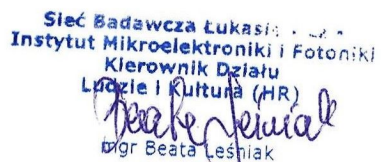 Sieć Badawcza Łukasi
Instytut Mikroelektroniki i Fotoniki
Kierownik Działu
Ludzie i Kultura (HR)
Beata Leśniak
mgr Beata Leśniak